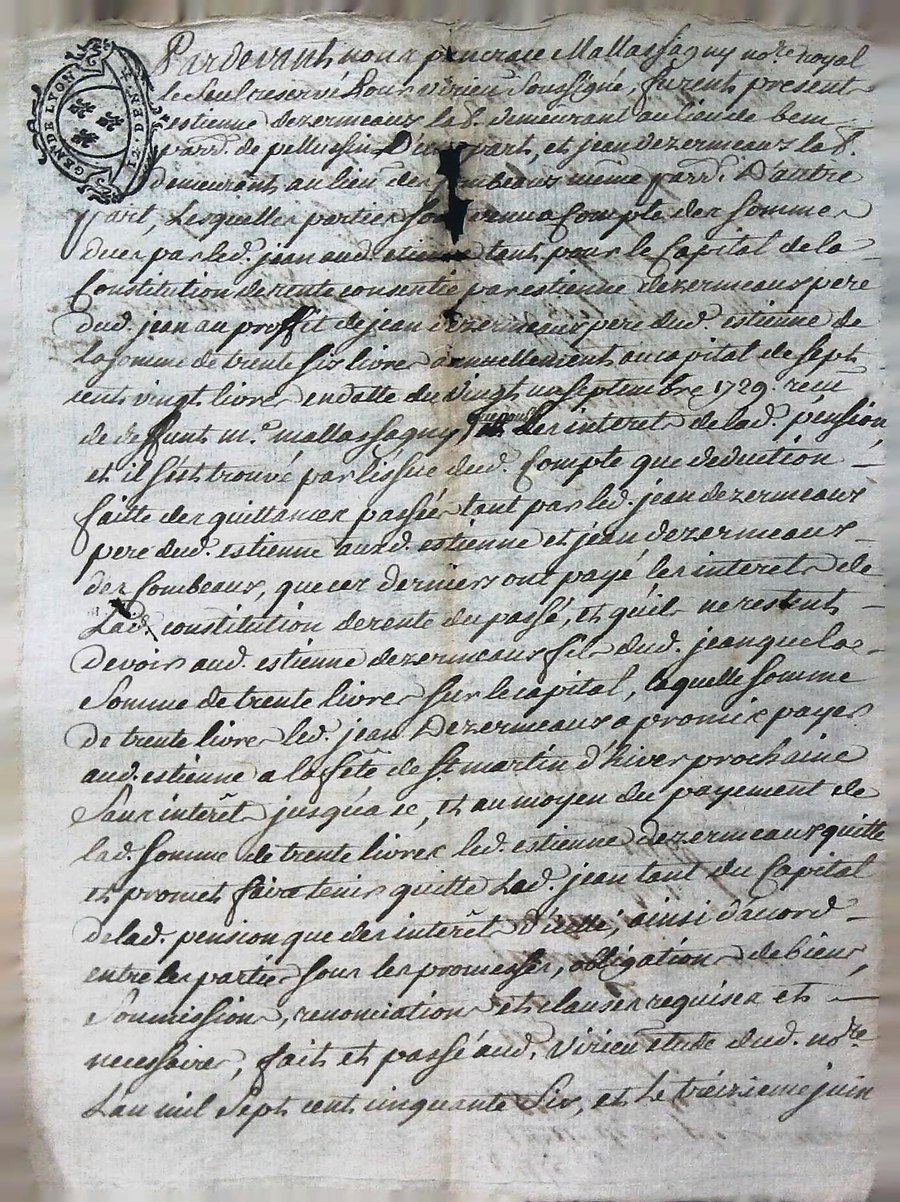 GEN DE LYON
Pardevant nous pancrace Mallassagny no.re royal
le Seul reservé Pour virieu Soussigné, furent present
estienne dezermeaux, la.r demeurant au lieu de bem
parr.e de pellussin D'une part, et jean dezermeaux la.r
demeurent au lieu des Combeaux même parr.e D'autre
part, Lesquelles parties sont venu a Compte des Sommes
dues par led. jean aud. estienne tant pour le Capital de la
Constitution de rente consentie par estienne dezermeaux pere
dud. jean au proffit de jean dezermeaux pere dud. estienne de
la somme de trente six livres annuellement au capital de sept
cent vingt livres en datte du vingt un septembre 1729 recu
de deffunt m.e mallassagny, que pour les interet de lad. pension
et il s'est trouvé par l'issue dud. Compte que deduction
faitte des quittances passée tant par led. jean dezermeaux
pere dud. estienne auxd. estienne et jean dezermeaux
des Combeaux, que ces derniers ont payé les interets de
Lad. constitution de rente du passé, et qu'il ne restent
devoir aud. estienne dezermeaux fils dud. jean que la
Somme de trente livres sur le capital, laquelle somme
De trente livres led. jean Dezermeaux a promis payer
aud. estienne a la fête de St martin d'hiver prochaine
Sans interêt jusqu'a ce, et au moyen du payement de
lad. somme de trente livres led. estienne dezermeaux quitte
et promet faire tenir quitte Led. jean tant du Capital
de lad. pension que des interêt D'icelle, ainsi d'acord
entre les parties sous les promesses, obligations de biens,
Soumissions, renonciations et clauses requises et
necessaires, fait et passé aud. Virieu etude dud. no.re
Lan mil Sept cent cinquante Six, et Le treizieme juin